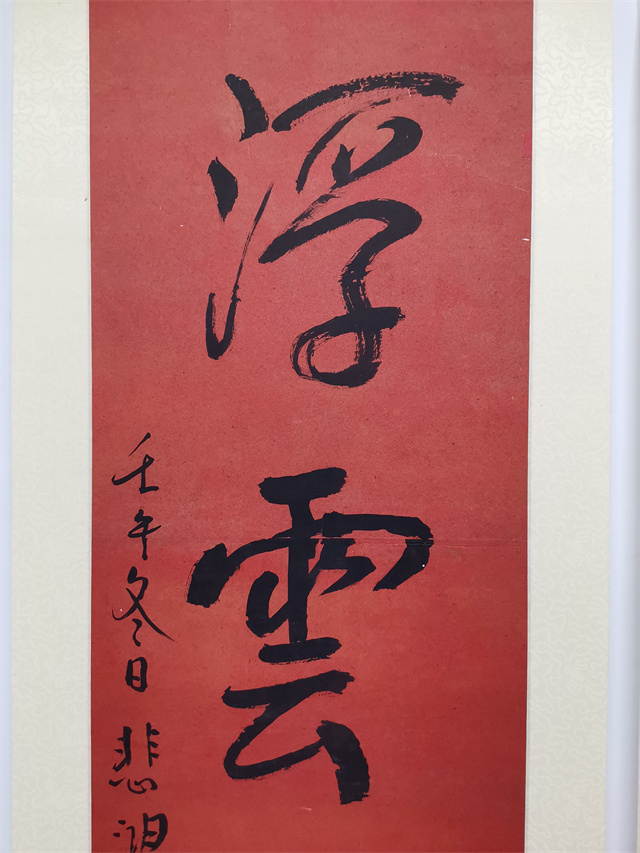 浮雲
壬午冬日 悲